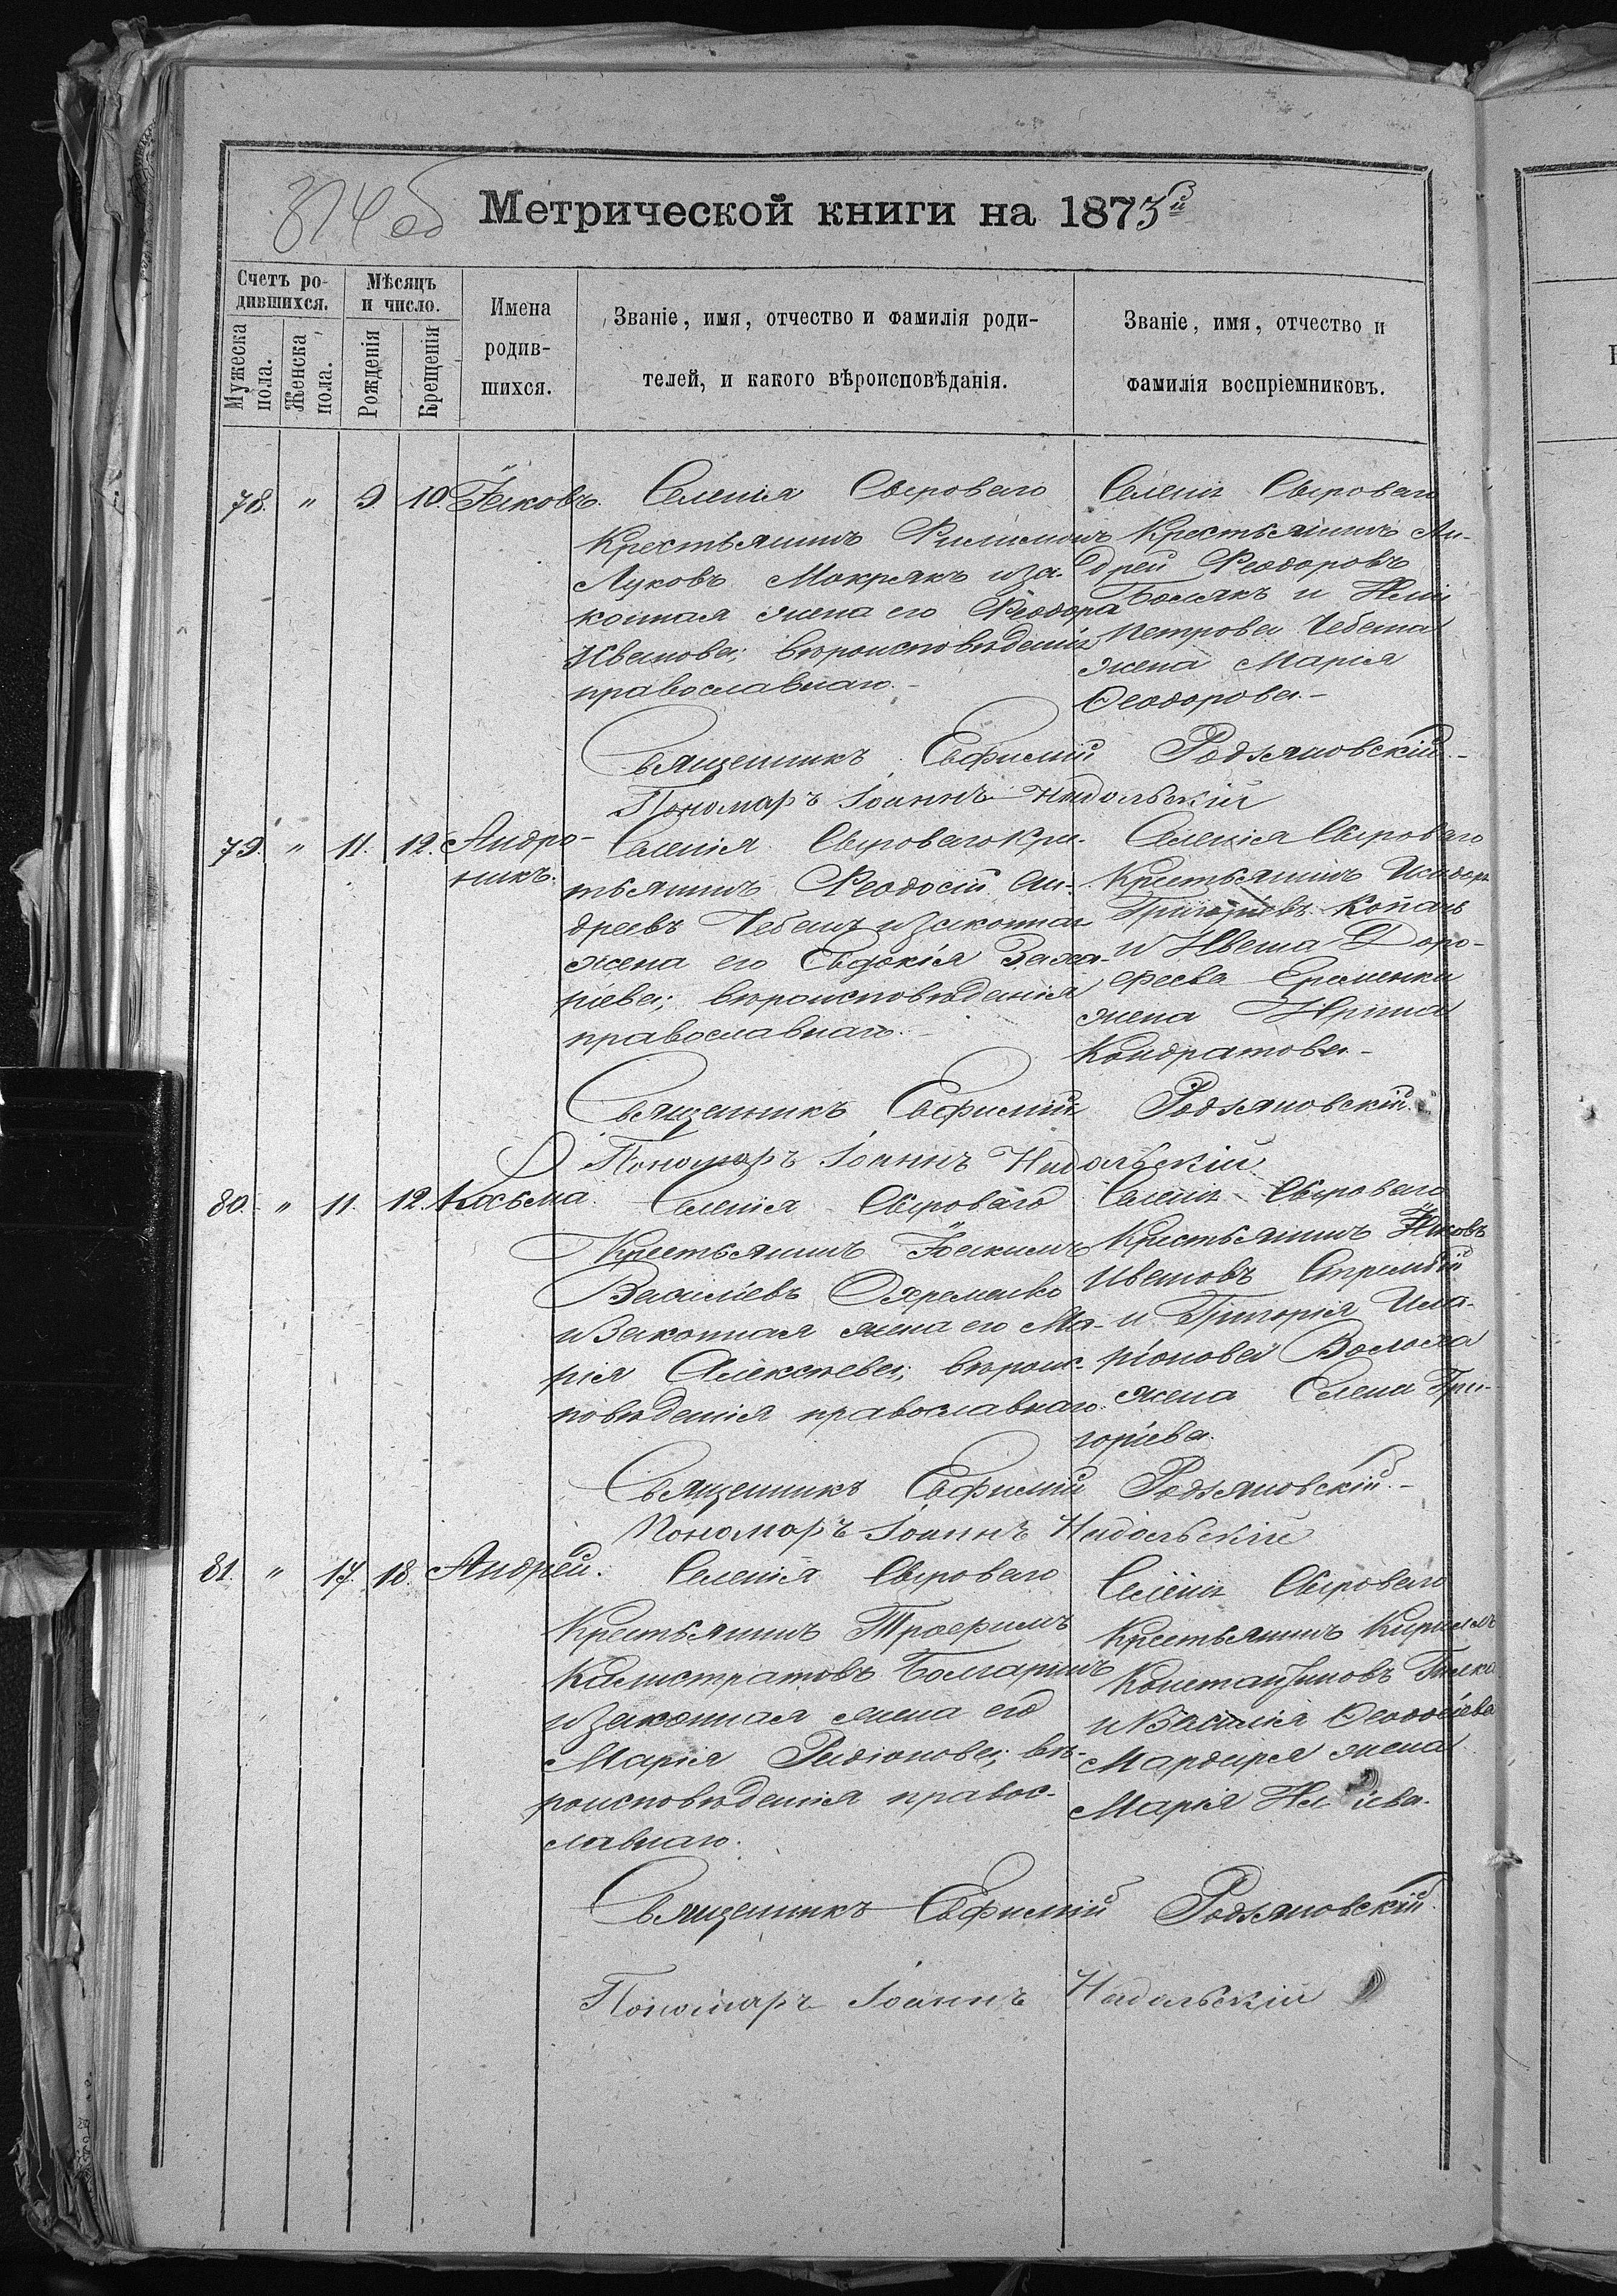 374 об
Метрической книги на 1873й
Счетъ ро-
дившихся.
Мѣсяцъ
и число.
Мужеска
пола.
Женска
пола.
Рожденія
Крещенія
Имена
родив-
шихся.
Званіе, имя, отчество и фамилія роди-
телей, и какого вѣроисповѣданія.
Званіе, имя, отчество и
фамилія воспріемниковъ.
78. " 9. 10. Іаковъ.
Селенія Сыроваго
Крестьянинъ Филимонъ
Луковъ Мокрякъ и за-
конная жена его Феодора
Иванова; вѣроисповѣданія
православнаго.-
Селенія Сыроваго
Крестьянинъ Ан-
дрей Феодоровъ
и
Петрова Чебана
жена Марія
Феодорова.-
Священникъ Евфимій Родзяновскій.-
Пономарь Іоаннъ Надольскій
79. " 11. 12. Андро-
никъ.
Селенія Сыроваго Кре-
тьянинъ Феодосій Ан-
дреевъ Чебанъ и законная
жена его Евдокія Заха-
ріева; вѣроисповѣданія
православнаго.-
Селенія Сыроваго
Крестьянинъ Исидоръ
Григоріевъ
и Ивана Доро-
феева Еременка
жена Ирина
Кондратова.-
Священникъ Евфимій Родзяновскій.
Пономарь Іоаннъ Надольскій
80. " 11. 12. Косьма.
Селенія Сыроваго
Крестьянинъ Іоакимъ
Василіевъ Охременко
и законная жена его Ма-
рія Алексѣева; вѣроис-
повѣданія православнаго.
Селенія Сыроваго
Крестьянинъ Іаковъ
Ивановъ
и Григорія Ила-
ріонова Волоха
жена Елена Гри-
горіева.
Священникъ Евфимій Родзяновскій.-
Пономарь Іоаннъ Надольскій
81. " 17. 18. Андрей.
Селенія Сыроваго
Крестьянинъ Трофимъ
Калистратовъ Болгаринъ
и законная жена его
Марія Радіонова; вѣ-
роисповѣданія правос-
лавнаго.
Селенія Сыроваго
Крестьянинъ Кириллъ
Константиновъ
и Василія
Мардаря жена
Марія
Священникъ Евфимій Родзяновскій.
Пономарь Іоаннъ Надольскій